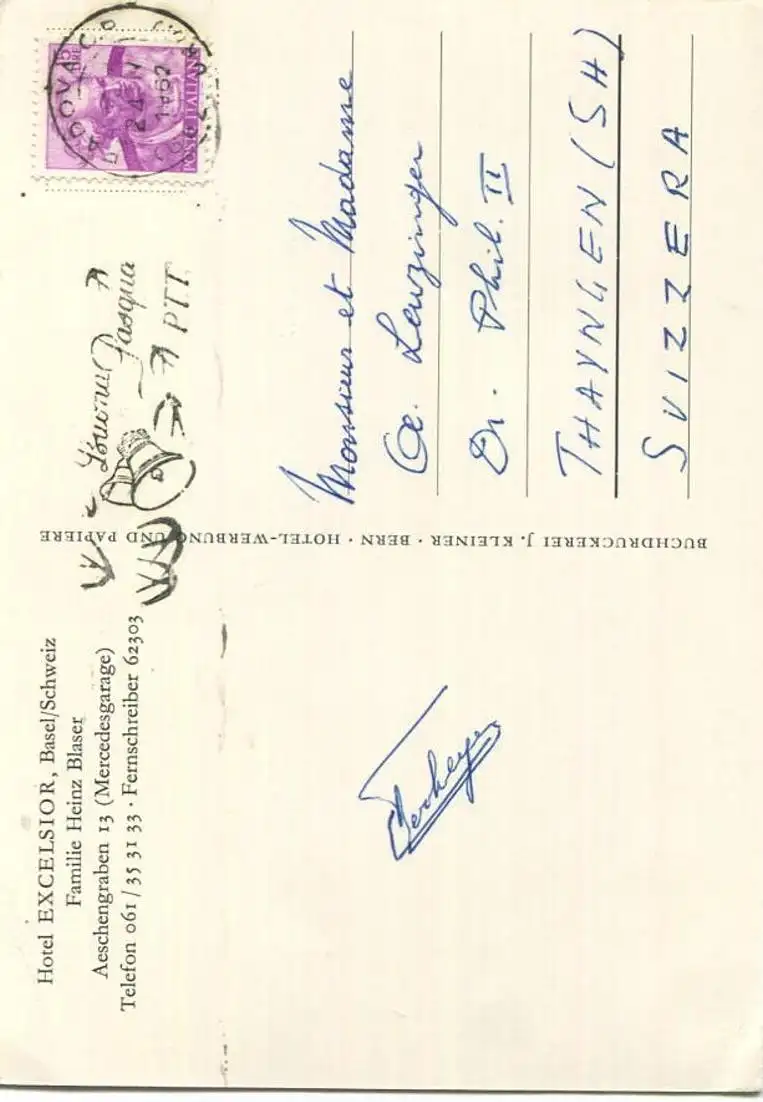 Hotel EXCELSIOR, Basel/Schweiz
Familie Heinz Blaser
Aeschengraben 13 (Mercedesgarage)
Telefon 061 / 35 31 33 · Fernschreiber 62303
BUCHDRUCKEREI J. KLEINER · BERN · HOTEL-WERBUNG UND PAPIERE
Buona Pasqua
PTT
PADOVA C.P.
24
1962
15 LIRE
POSTE ITALIANE
Monsieur et Madame
Leuzinger
Dr. Phil. II
THAYNGEN (SH)
SVIZZERA